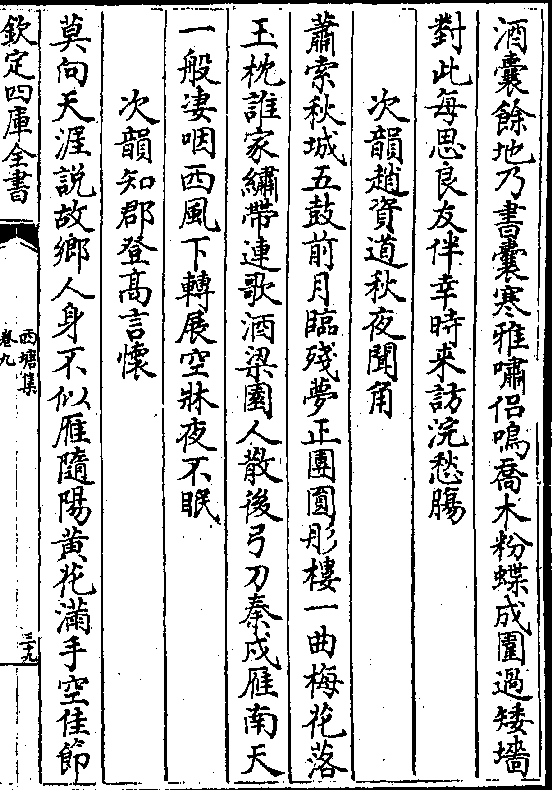 酒囊餘地乃書囊寒雅嘯侣鳴喬木粉蝶成團過矮墻
對此每思良友伴幸時來訪浣愁腸
次韻趙資道秋夜聞角
蕭索秋城五鼓前月臨殘夢正團圓彤樓一曲梅花落
玉枕誰家繡帶連歌酒梁園人散後弓刀秦戍雁南天
一般凄咽西風下轉展空牀夜不眠
次韻知郡登髙言懷
莫向天涯説故鄉人身不似雁隨陽黄花滿手空佳節
欽定四庫全書
西塘集
卷九
三九